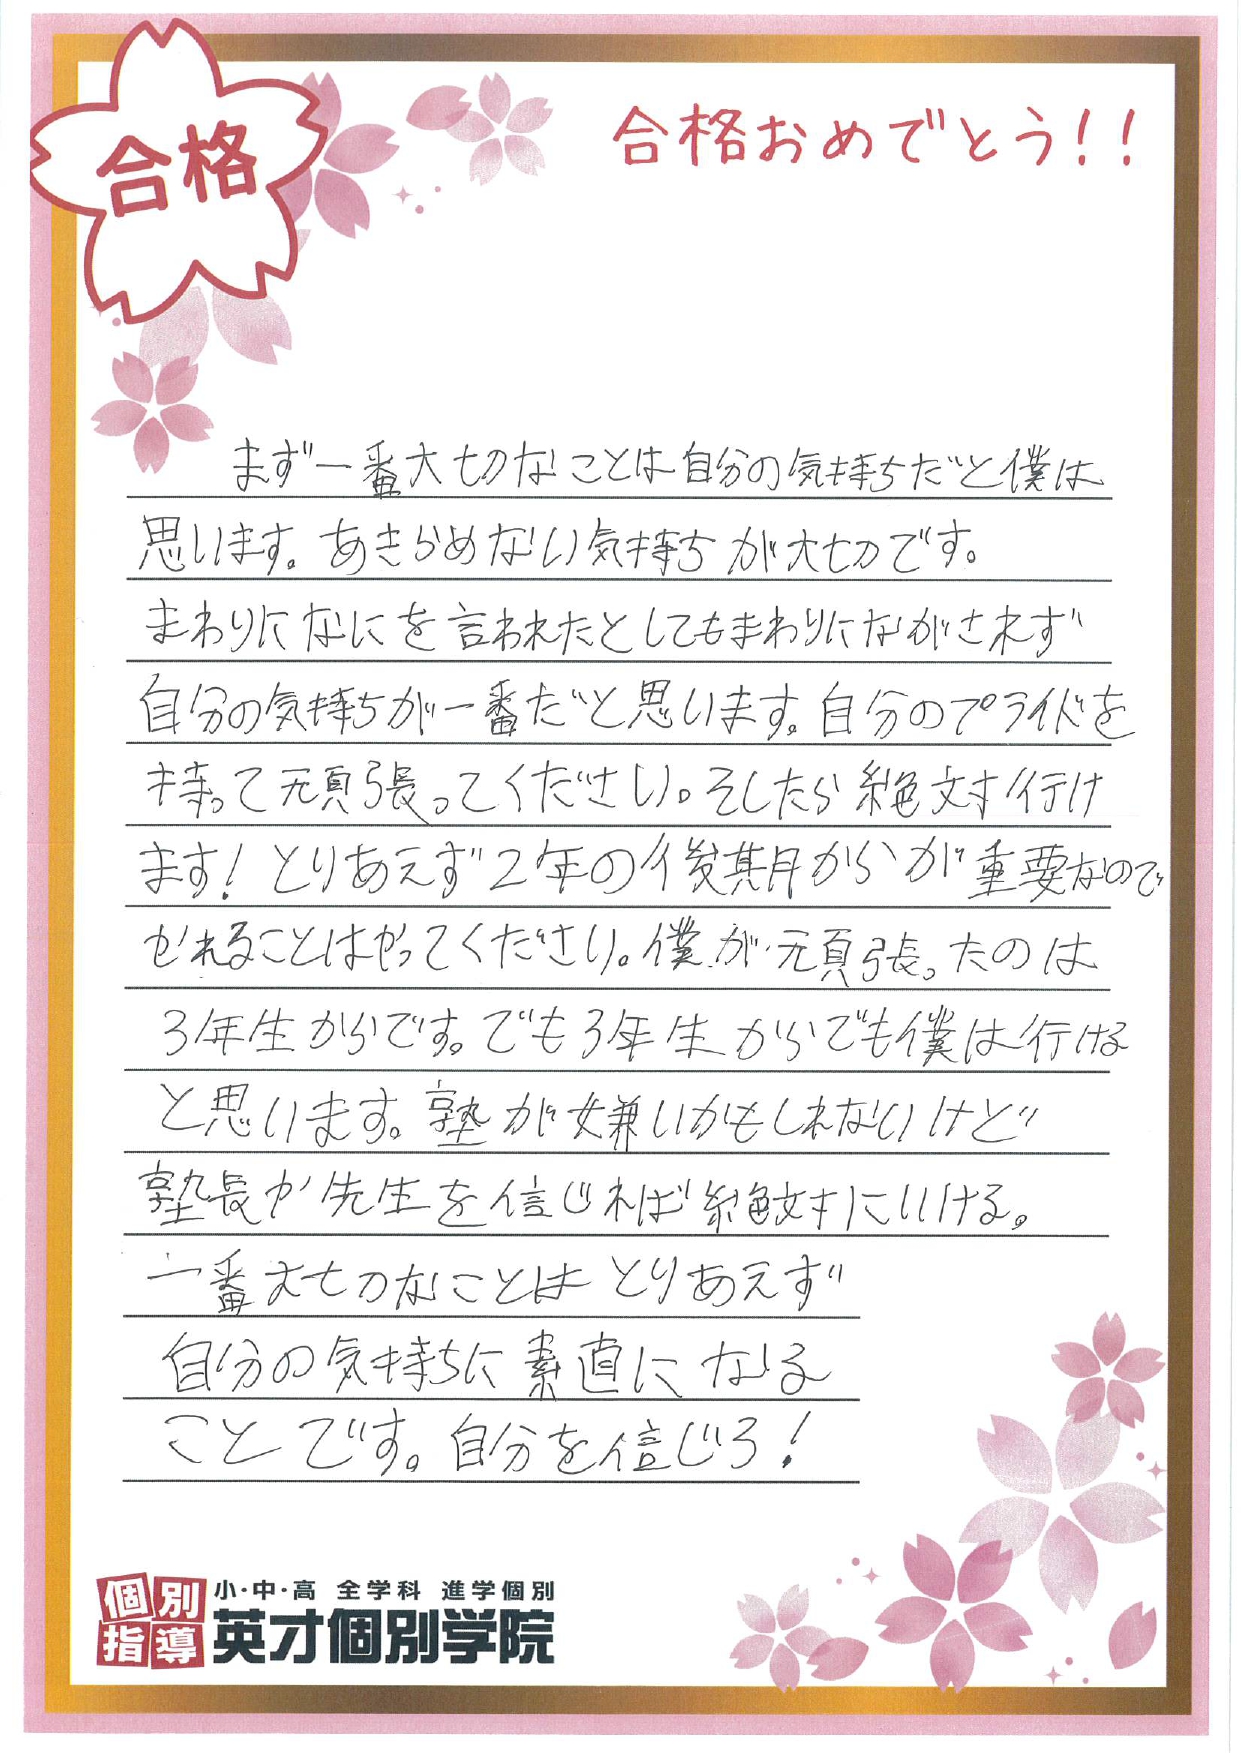 合格
合格おめでとう!!
まず一番大切なことは自分の気持ちだと僕は
思います。あきらめない気持ちが大切です。
まわりになにを言われたとしてもまわりにながされず
自分の気持ちが一番だと思います。自分のプライドを
持って頑張ってください。そしたら絶対行け
ます!とりあえず2年の後期からが重要なので
やれることはやってください。僕が頑張ったのは
3年生からです。でも3年生からでも僕は行ける
と思います。塾が嫌いかもしれないけど
塾長か先生を信じれば絶対にいける。
一番大切なことはとりあえず
自分の気持ちに素直になる
ことです。自分を信じろ!
個別指導
小・中・高 全学科 進学個別
英才個別学院